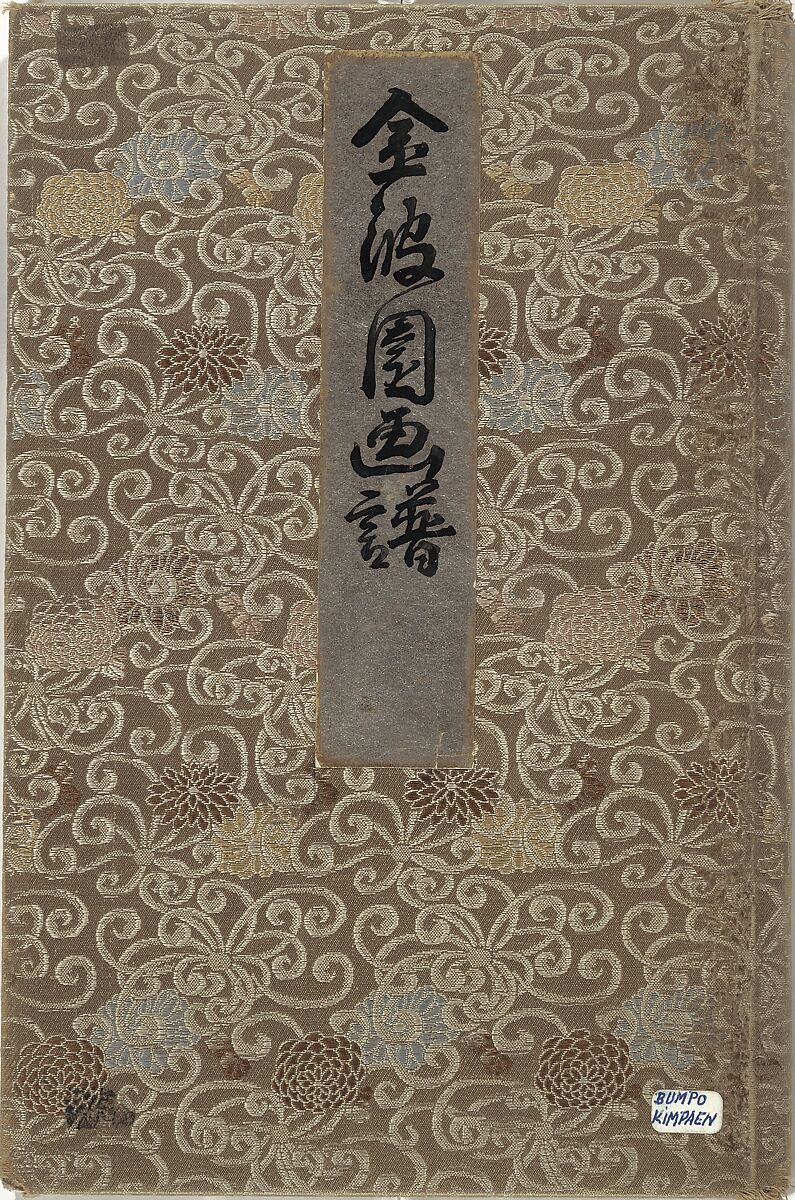 金波園画譜
BUMPO
KIMPAEN